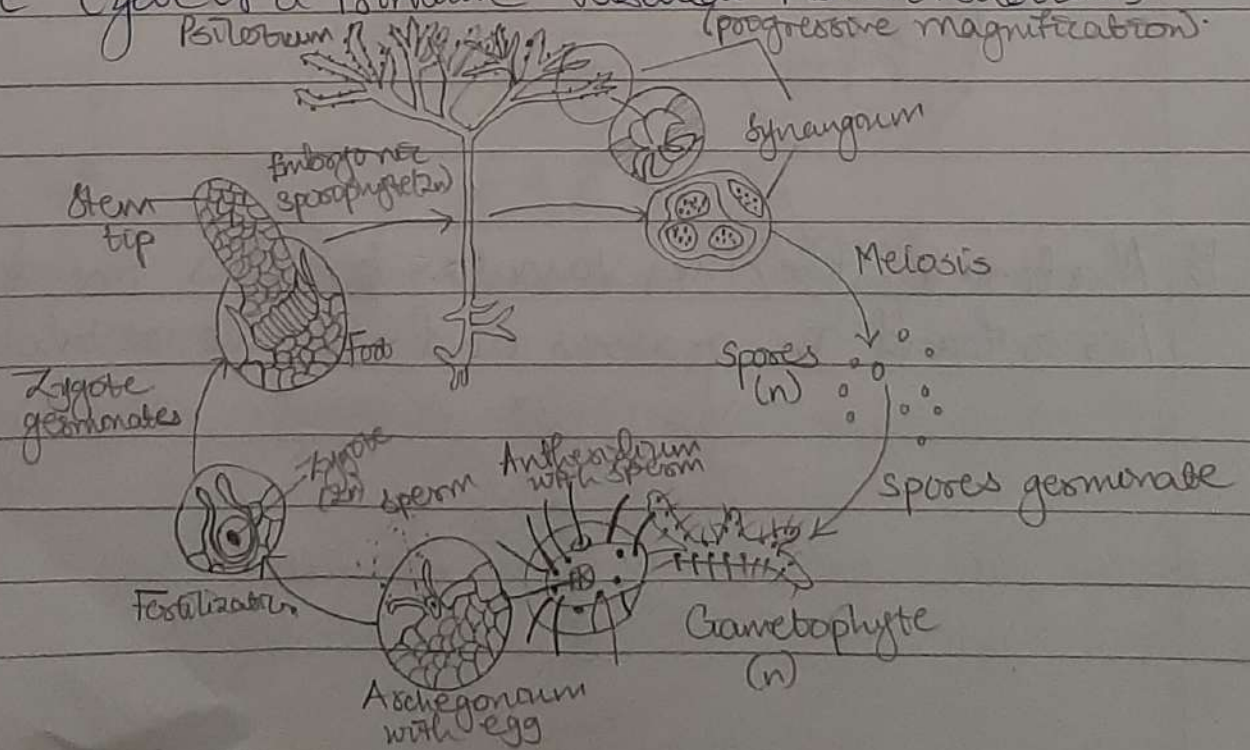 Psilotrum
(progressive magnification).
Synangoum
Embryonic
sporophyte(2n)
Stem
tip
Foot
Meiosis
Spores
(n)
Zygote
germonates
Zygote
(2n)
sperm
Antheridium
with sperm
Spores germonate
Fertilization
Gametophyte
(n)
Archegonoum
with egg